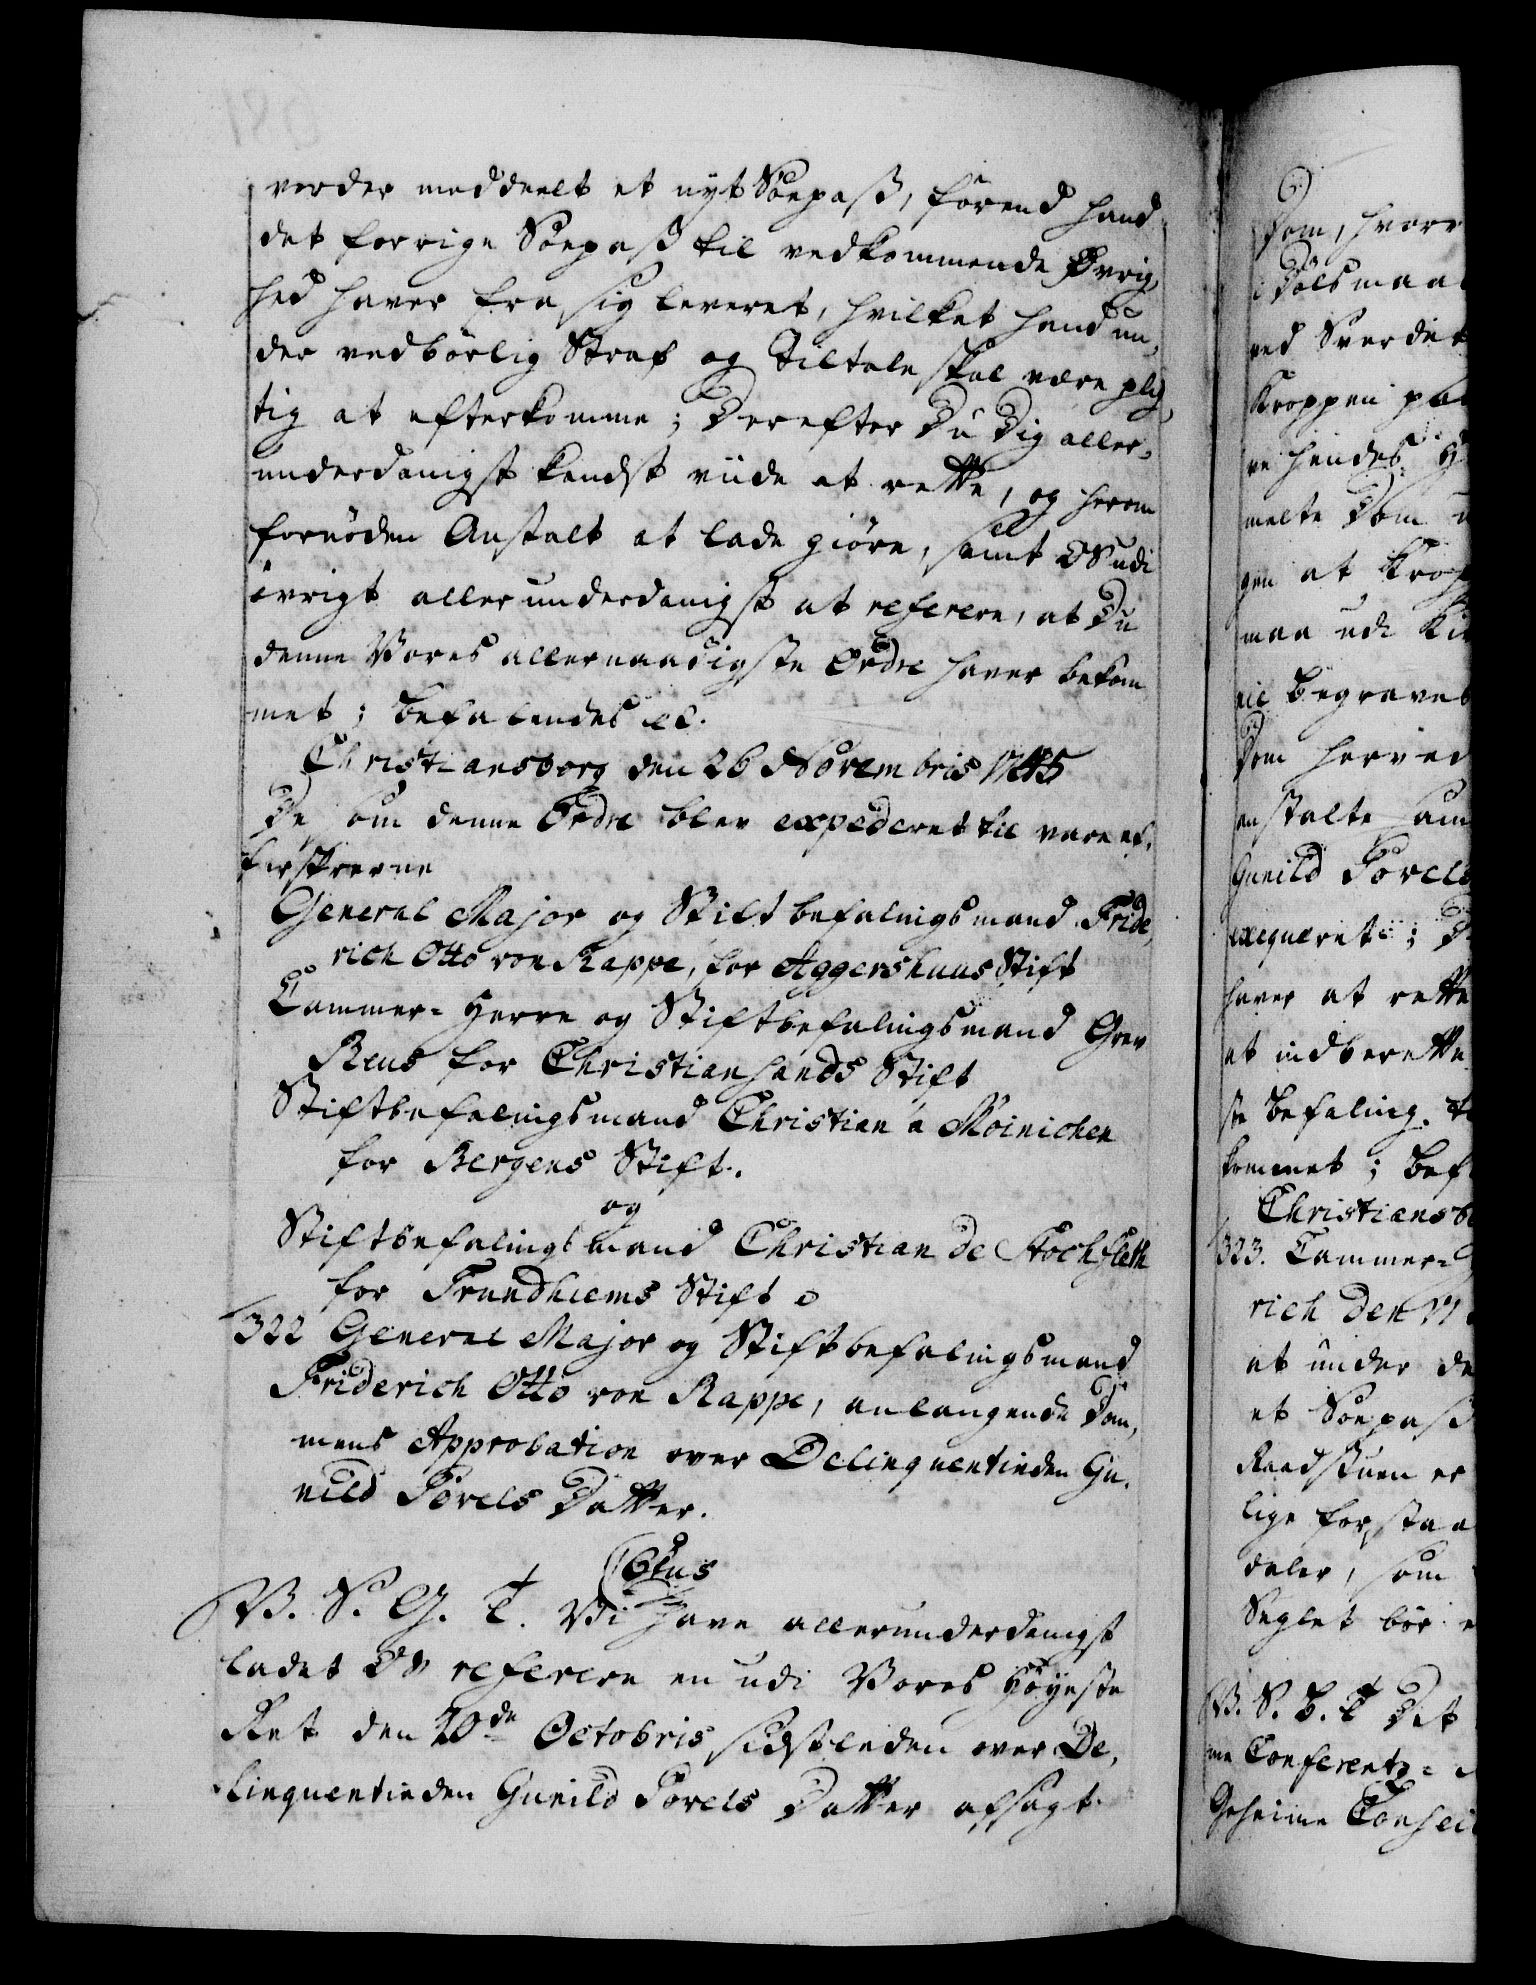 vorder meddeelt et nyt Söepass, förend hand
det forrige Söepass til vedkommende Øvrig,
hed haver fra sig leveret, hvilket hand un,
der vedbörlig Straf og Tiltale skal være plig,
tig at efterkomme; Derefter Du Dig aller,
underdanigst kendst viide at rette, og herom
fornöden Anstalt at lade giöre, samt OS udi
övrigt allerunderdanigst at referere, at Du
denne Vores allernaadigste Ordre haver bekom
met; befalendes etc.
Christiansborg den 26 Novembris 1745
De som denne Ordre blev expederet til vare ef,
terskrevne
General Major og Stiftbefalingsmand Fride,
rich Otto von Rappe, for Aggershuus Stift
Cammer-Herre og Stiftbefalingsmand Grev
Reus for Christiansands Stift
Stiftbefalingsmand Christian a Möinichen
for Bergens Stift.
og
Stiftbefalingsmand Christian de Stochfleth
for Trundhiems Stift
322 General Major og Stiftbefalingsmand
Friderich Otto von Rappe, anlangende Dom,
mens Approbation over Delinquentinden Gu,
nild Torels Datter.
V. S. G. T. Vi have allerunderdanigst
ladet OS referere en udi Vores Höyeste
Ret den 20de Octobris sidstleden over De,
linquentinden Gunild Torels Datter afsagt
Dom, hvor
Dölsmaa
ved Sverdet
Kroppen paa
re hendes
melte Dom
gen at Krop
maa udi Ki
begraves
Dom herved
anstalte
Gunild Torels
exequeret; D
haver at rette
at indberette
ste befaling
kommet; bef
Christiansb
323. Cammer-
rich den
at under de
et Söepass
Raadstuen er
lige forstaa
daler, som
Seglet bör
V. S. B. T Dit
me Conferentz-
Geheime Conseil